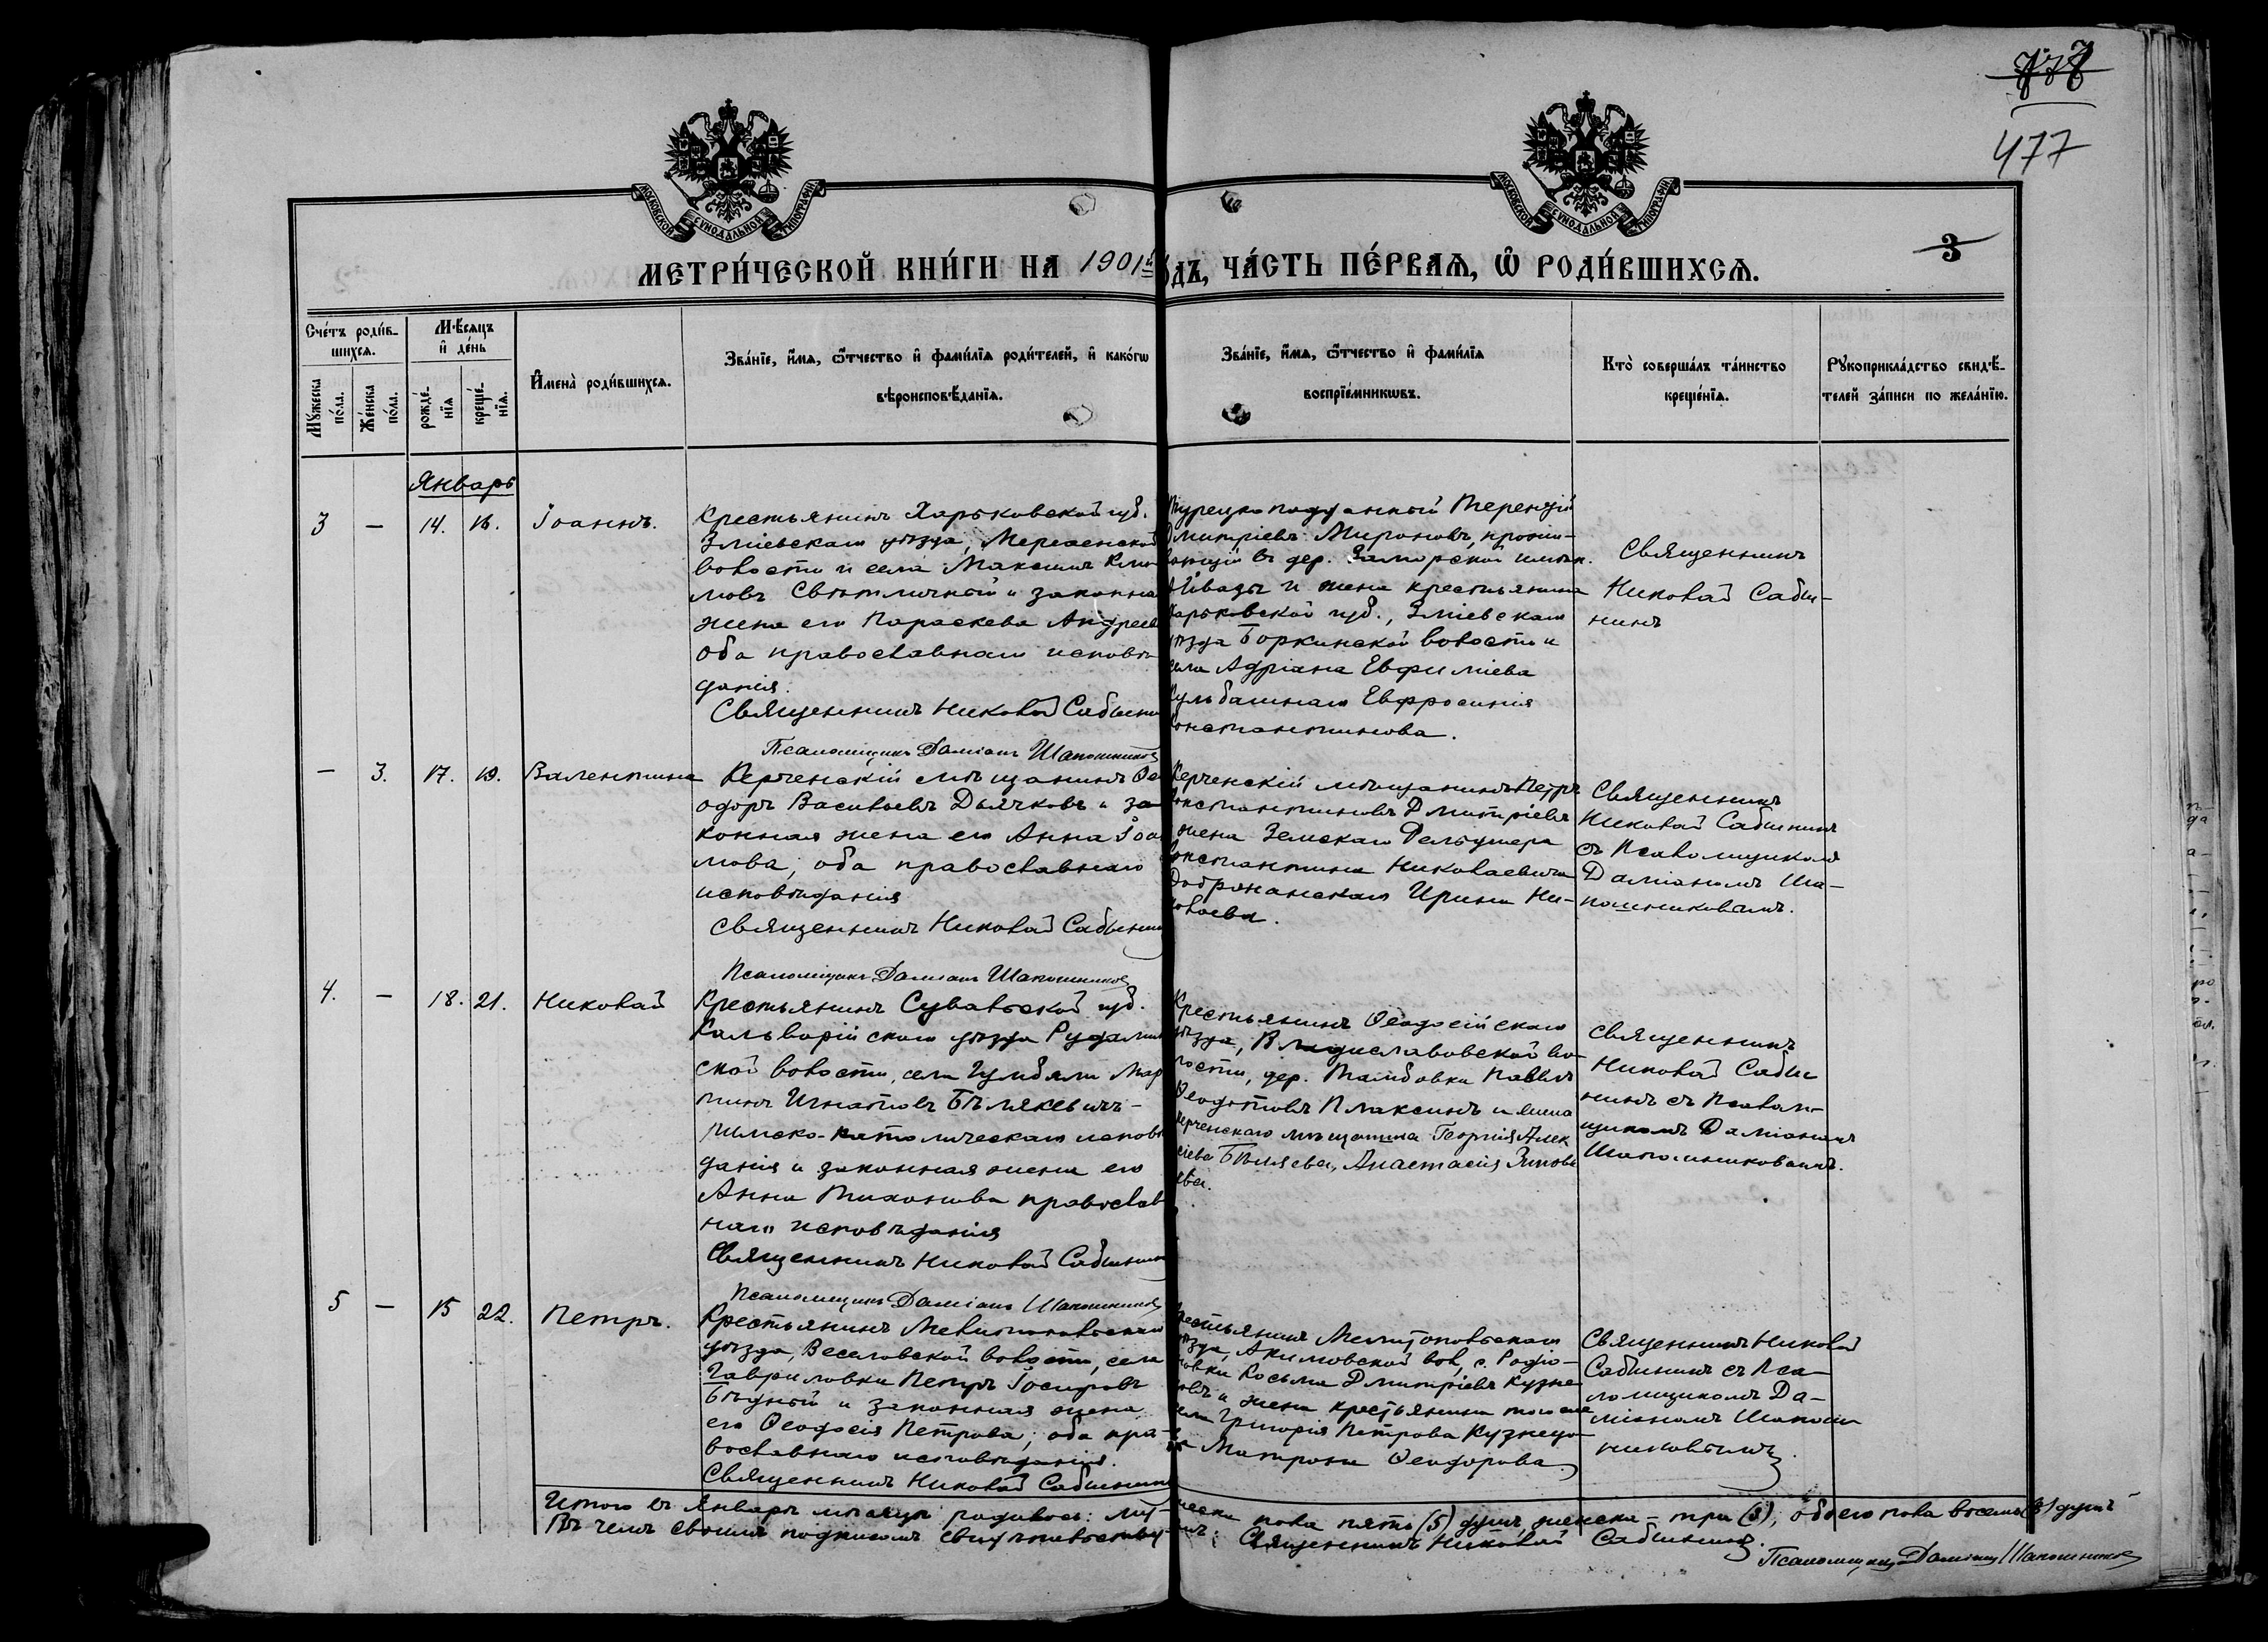 777
477
МОСКОВСКОЙ СѴНОДАЛЬНОЙ ТИПОГРАФІИ
МОСКОВСКОЙ СѴНОДАЛЬНОЙ ТИПОГРАФІИ
3
МЕТРИ́ЧЕСКОЙ КНИ́ГИ НА 1901й
ДЪ, ЧА́СТЬ ПЕ́РВАѦ, Ѽ РОДИ́ВШИХСѦ.
Сче́тъ роди́в-
шихсѧ.
Мꙋ́жеска
по́ла.
Же́нска
по́ла.
Мѣ́сѧцъ
и҆ де́нь
рожде́-
нїѧ
креще́-
нїѧ.
И҆мена̀ роди́вшихсѧ.
Зва́нїе, и҆́мѧ, ѻ҆́тчество и҆ фами́лїѧ роди́телей, и҆ како́гѡ
вѣроисповѣ́данїѧ.
Зва́нїе, и҆́мѧ, ѻ҆́тчество и҆ фами́лїѧ
воспрїе́мникѡвъ.
Кто̀ соверша́лъ та́инство
креще́нїѧ.
Рꙋкоприкла́дство свидѣ́-
телей за́писи по жела́нїю.
Январь
3 — 14. 16. Іоаннъ.
Крестьянинъ Харьковской губ.
Зміевскаго уѣзда, Мереѳенской
волости и села Максимъ Кли-
мовъ Свѣтличный и законна
жена его Параскева Андреев
оба православнаго исповѣ-
данія.
Священникъ Николай Сабинин
Псаломщикъ Даміанъ Шапошников
Турецко подданный Терентій
Дмитріевъ Мироновъ, прожи-
вающій въ дер. Заморской имѣн.
Айвазъ и жена крестьянина
Харьковской губ., Зміевскаго
уѣзда Боркинской волости и
села Адріана Евфиміева
Кульбашнаго Евфросинія
Константинова.
Священникъ
Николай Саби-
нинъ
— 3. 17. 19. Валентина
Керченскій мѣщанинъ Ѳе
одоръ Васильевъ Дьячковъ и за
конная жена его Анна Іоа
мова, оба православнаго
исповѣданія
Священникъ Николай Сабинин
Псаломщикъ Даміанъ Шапошников
Керченскій мѣщанинъ Петръ
Константиновъ Дмитріевъ
жена Земскаго Фельдшера
Константина Николаевича
Добржанскаго Ирина Ни-
колаева.
Священникъ
Николай Сабининъ
съ Псаломщикомъ
Даміаномъ Ша-
пошниковымъ.
4. — 18. 21. Николай
Крестьянинъ Сувалкской губ.
Кальварійскаго уѣзда Рудамин
ской волости, села Гумбали Мар
тинъ Игнатовъ Бѣлякевичъ-
римско-католическаго исповѣ
данія и законная жена его
Анна Тихонова православ
наго исповѣданія
Священникъ Николай Сабинин
Псаломщикъ Даміанъ Шапошников
Крестьянинъ Ѳеодосійскаго
уѣзда, Владиславовской во-
лости, дер. Тамбовки Павелъ
Ѳеодотовъ Плаксинъ и жена
керченскаго мѣщанина Георгія Алек
сіева Бѣляева, Анастасія Зиновь
ева.
Священникъ
Николай Саби
нинъ съ Псалом-
щикомъ Даміаномъ
Шапошниковымъ.
5 — 15 22. Петръ.
Крестьянинъ Мелитопольскаго
уѣзда, Веселовской волости, села
Гавриловки Петръ Іосифовъ
Бѣдный и законная жена
его Ѳеодосія Петрова; оба пра-
вославнаго исповѣданія.
Священникъ Николай Сабининъ
Крестьянинъ Мелитопольскаго
уѣзда, Акимовской вол, с. Родіо-
новки Косьма Дмитріевъ Кузне
цовъ и жена крестьянина того же
села Григорія Петрова Кузнецо-
ва Матрона Ѳеодорова
Священникъ Николай
Сабининъ съ Пса-
ломщикомъ Да-
міаномъ Шапош
никовымъ
Итого въ Январѣ мѣсяцѣ родилось: муж-
ческа пола пять (5) душъ, женска - три (3), обоего пола восемь (8) душъ
Въ чемъ своимъ подписомъ свидѣтельству-
емъ: Священникъ Николай Сабининъ.
Псаломщикъ Даміанъ Шапошников